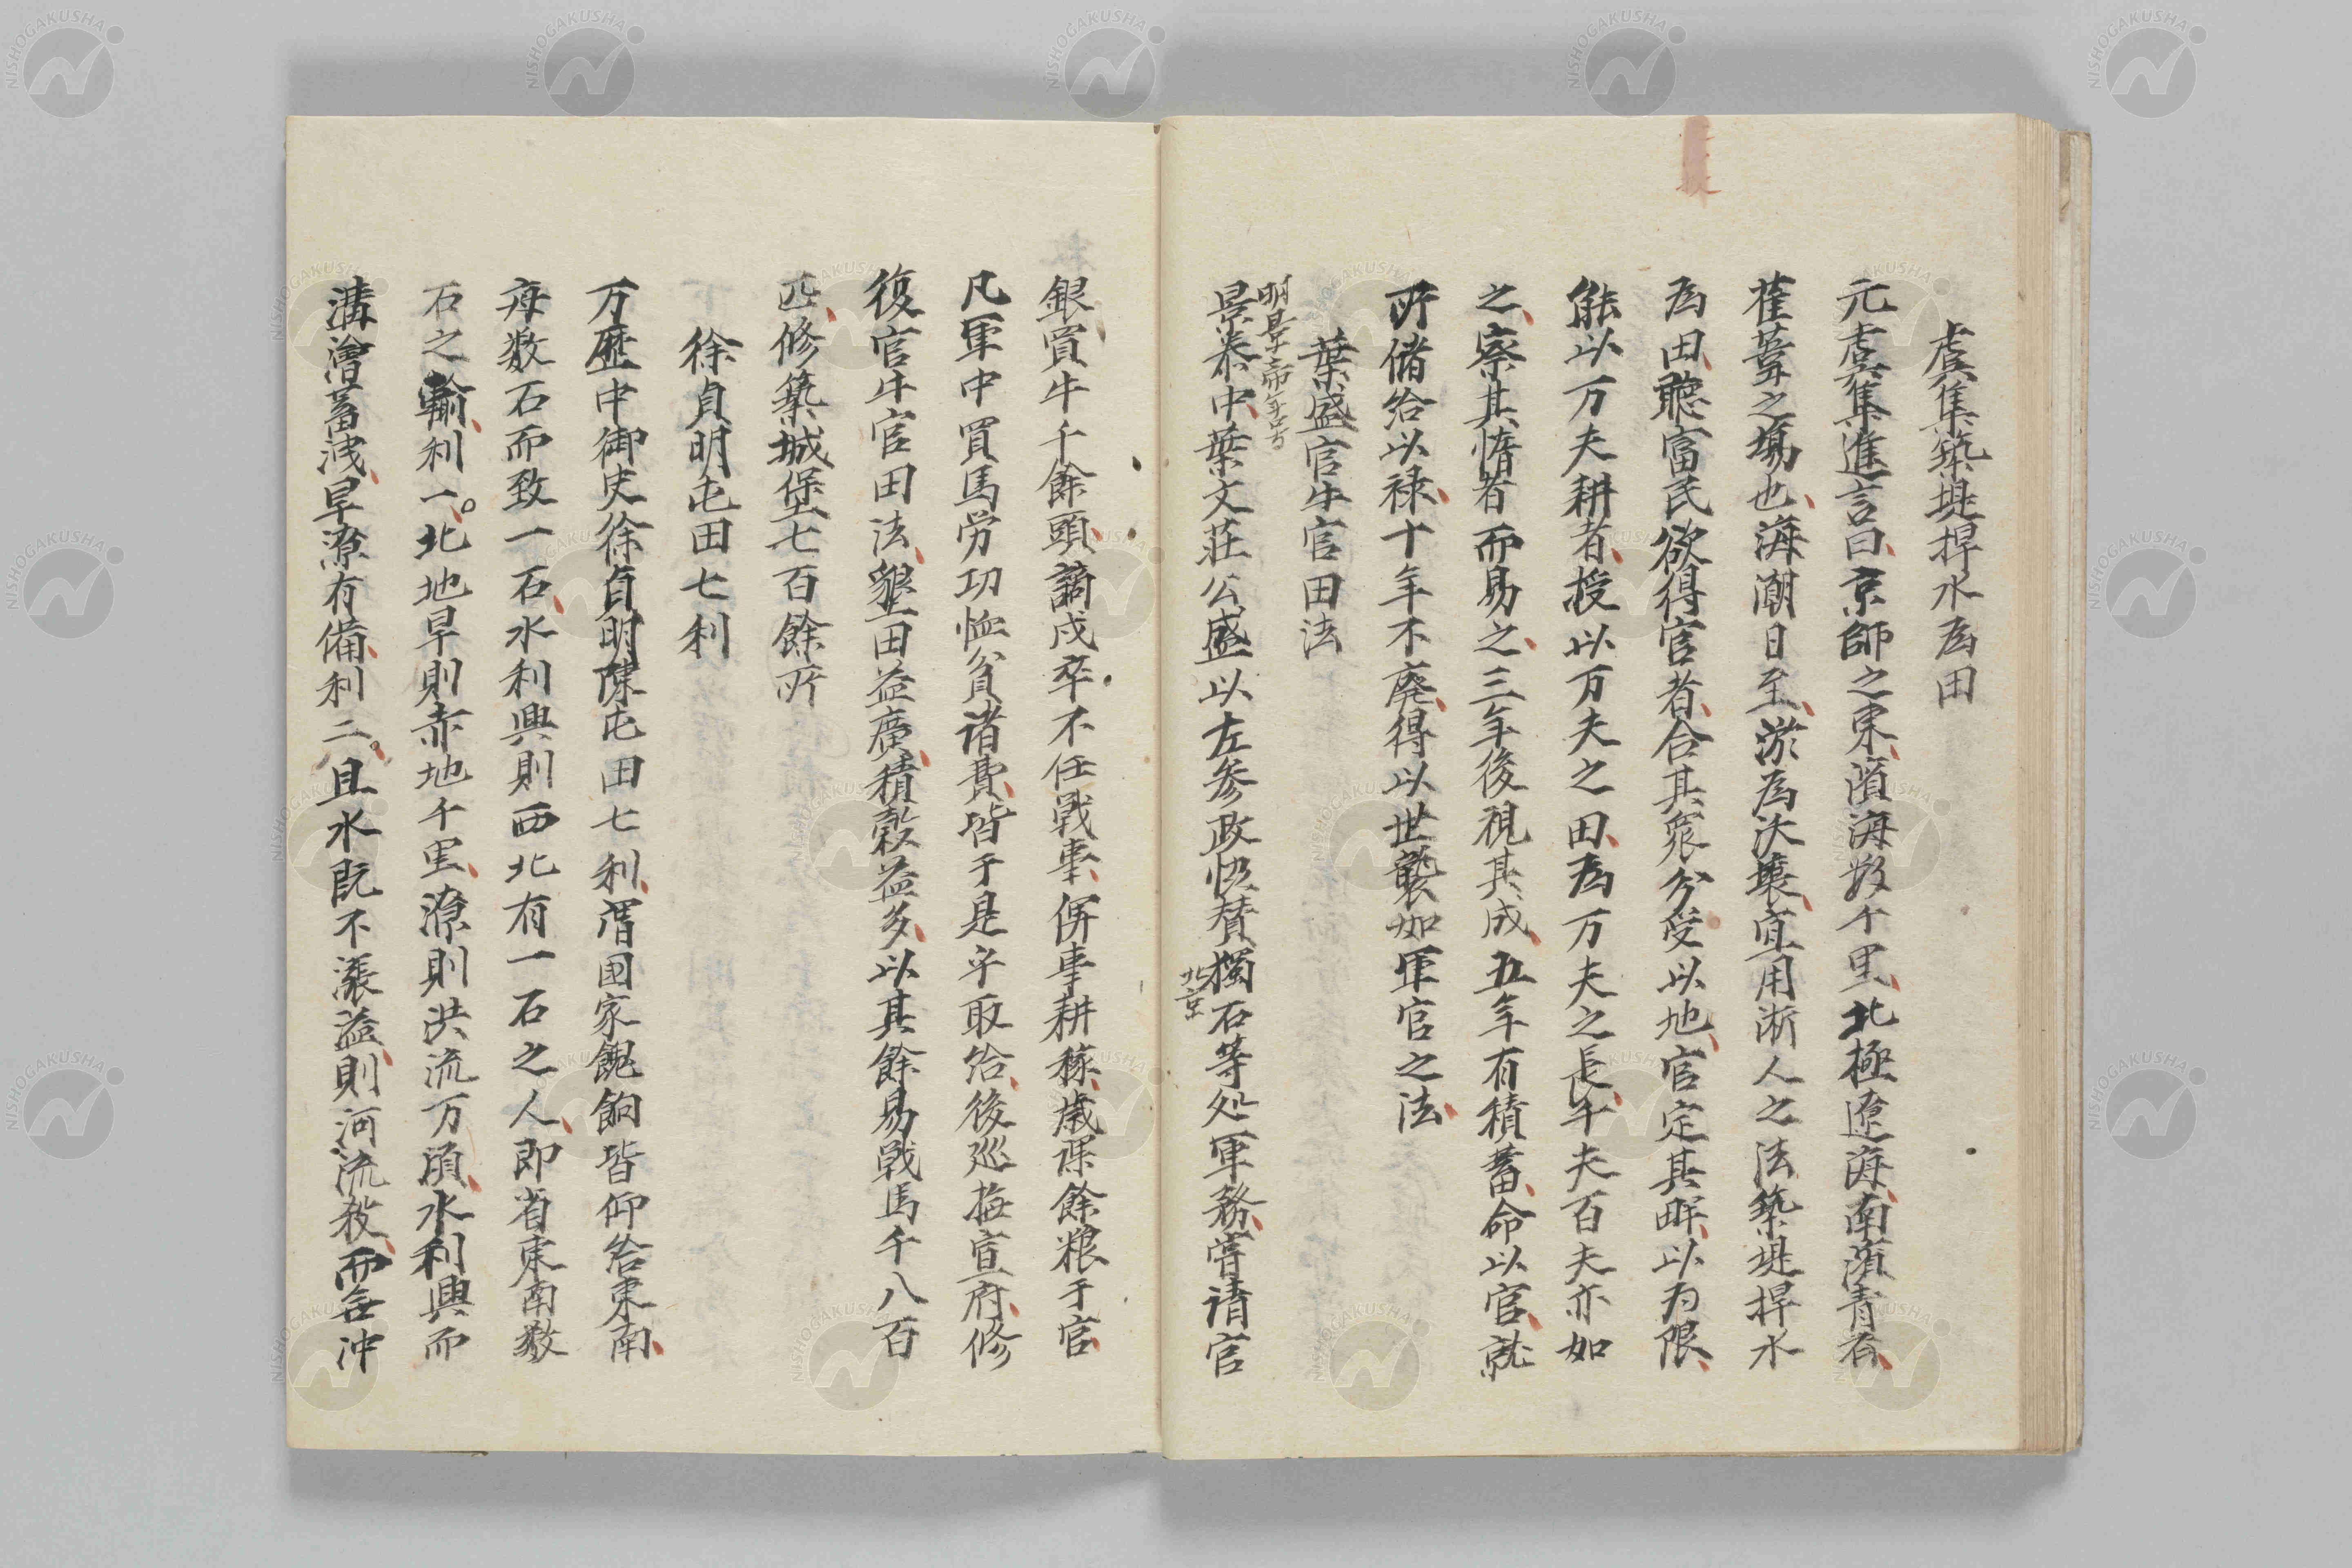 虞集築堤捍水為田
元虞集進言曰京師之東濵海数千里北極遼海南濵青齊
萑葦之塲也海潮日至淤為沃壤宜用浙人之法築堤捍水
為田聽富民欲得官者合其衆分受以地官定其畔以為限
能以万夫耕者授以万夫之田為万夫之長千夫百夫亦如
之察其惰者而易之三年後視其成五年有積蓄命以官就
所儲給以禄十年不廃得以世襲如軍官之法
葉盛官牛官田法
明景帝年号
景泰中葉文荘公盛以左参政恊賛獨石等処軍務嘗请官
北京
銀買牛千餘頭謫戍卒不任戦事併事耕稼歳課餘粮于官
凡軍中買馬労功恤貧诸費皆于是乎取给後巡撫宣府修
復官牛官田法墾田益廣積穀益多以其餘易戦馬千八百
匹修築城堡七百餘所
徐貞明屯田七利
万歴中御史徐貞明陳屯田七利謂國家餽餉皆仰给東南
毎数石而致一石水利興則西北有一石之人即省東南数
石之輸利一北地旱則赤地千里潦則洪流万頃水利興而
溝澮蓄洩旱潦有備利二且水既不漲溢則河流殺而無沖